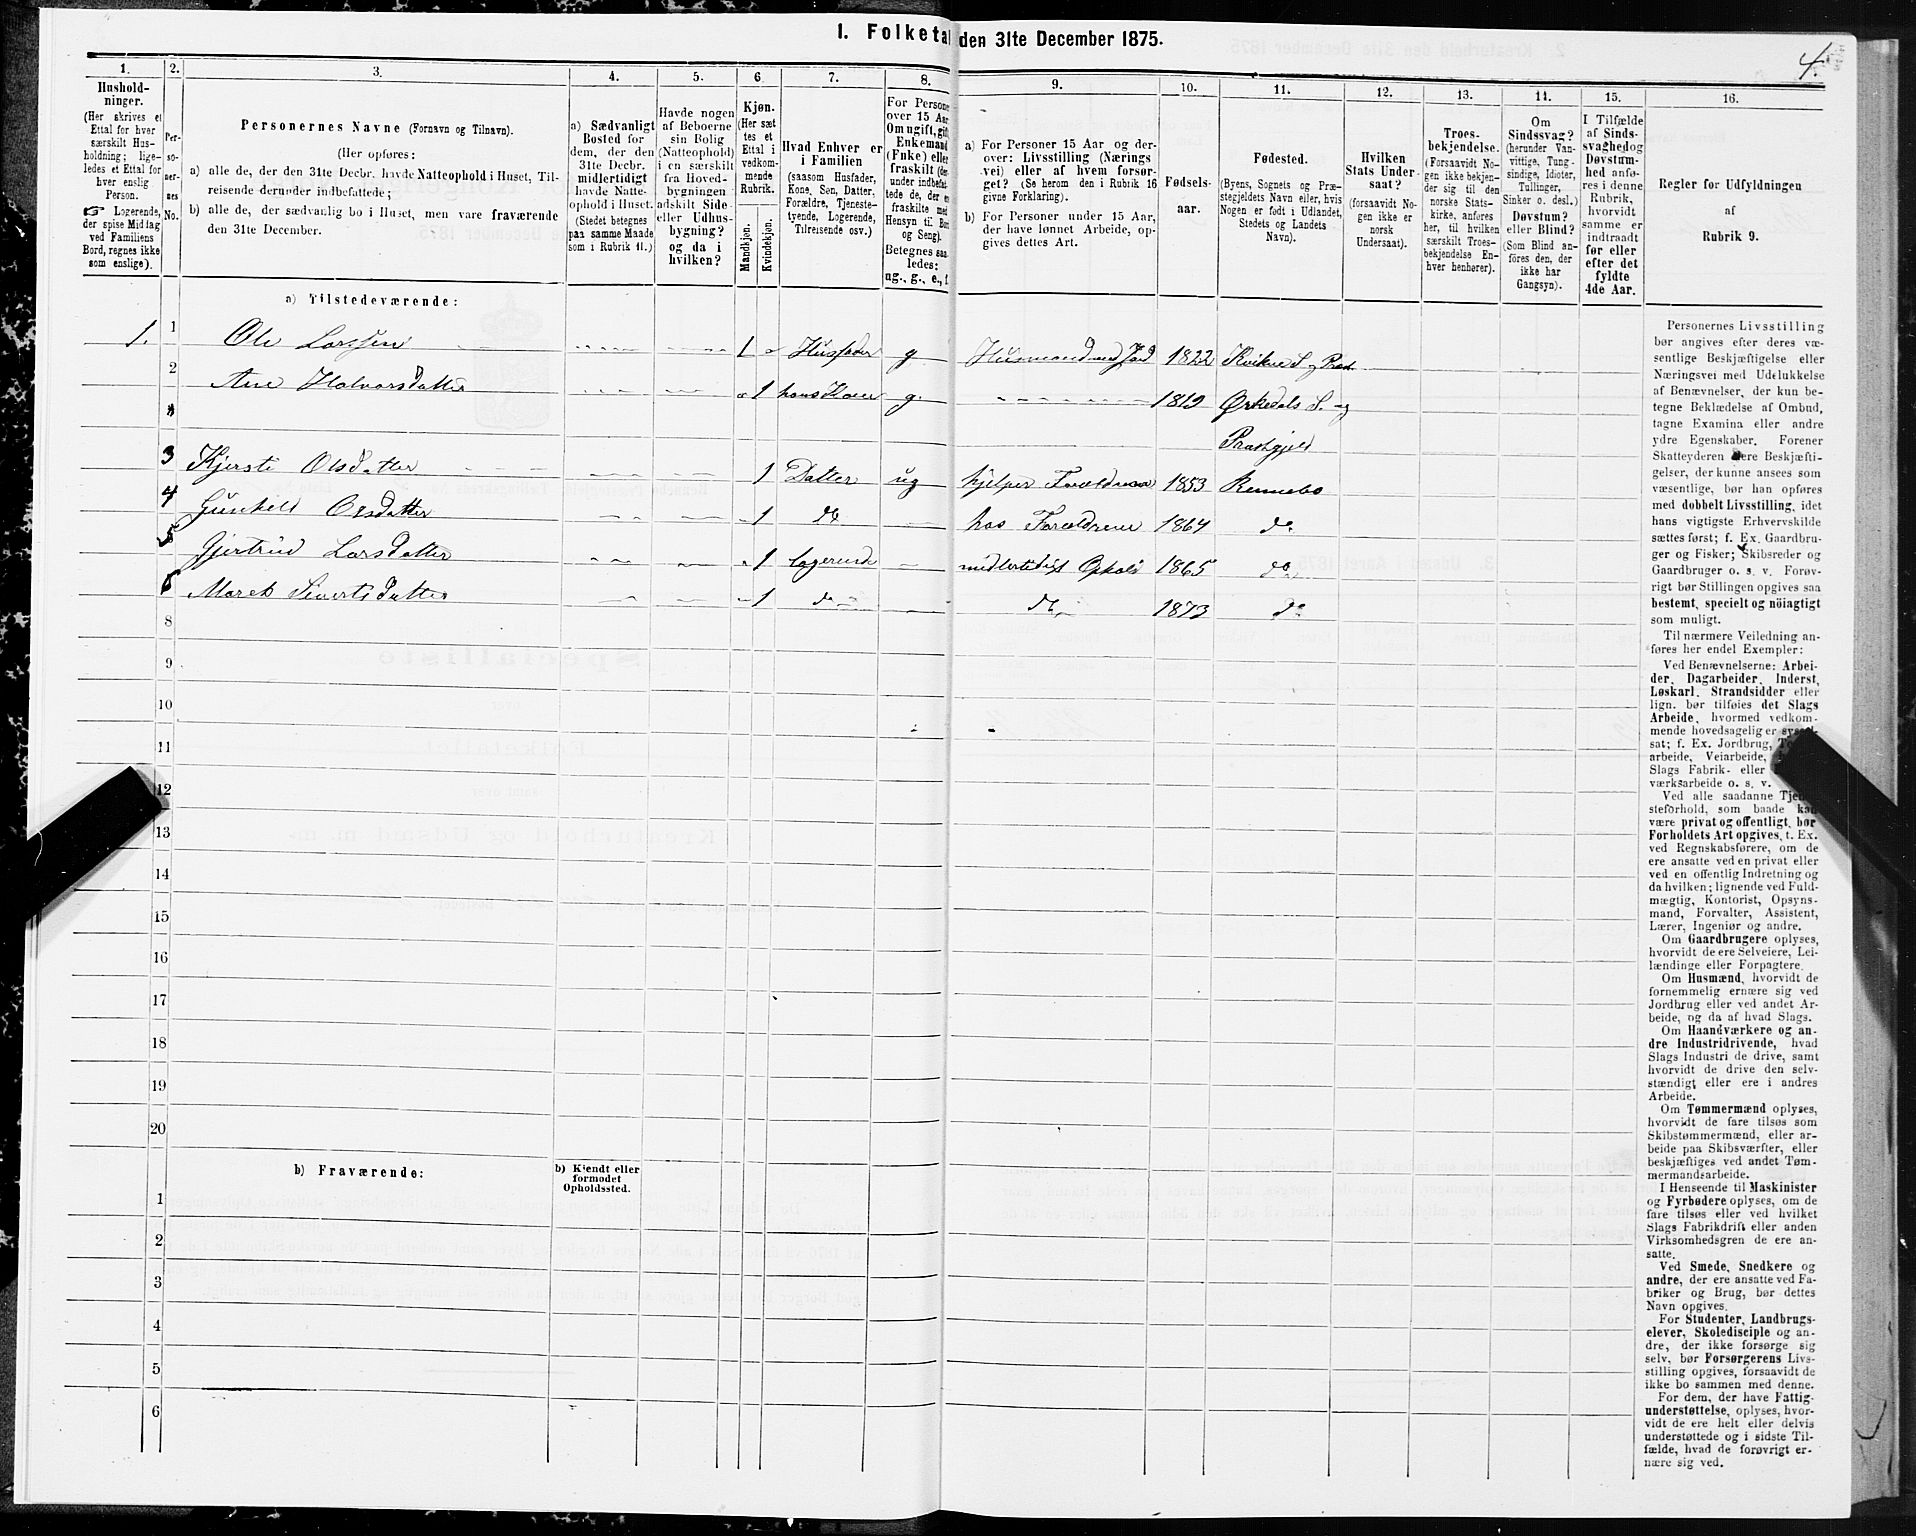 1. Folketal den 31te December 1875.
4.
1. 2. 3. 4. 5. 6. 7. 8. 9. 10. 11. 12. 13. 14. 15. 16.
Hushold-
ninger.
(Her skrives et
Ettal for hver
særskilt Hus-
holdning; lige-
ledes et Ettal for
hver enslig
Person.
☞ Logerende,
der spise Middag
ved Familiens
Bord, regnes ikke
som enslige).
Per-
so-
ner-
nes
No.
Personernes Navne (Fornavn og Tilnavn).
(Her opføres:
a) alle de, der den 31te Decbr. havde Natteophold i Huset, Til-
reisende derunder indbefattede;
b) alle de, der sædvanlig bo i Huset, men vare fraværende
den 31te December.
a) Sædvanligt
Bosted for
dem, der den
31te Decbr.
midlertidigt
havde Natte-
ophold i Huset.
(Stedet betegnes
paa samme Maade
som i Rubrik 11.)
Havde nogen
af Beboerne
sin Bolig
(Natteophold)
i en særskilt
fra Hoved-
bygningen
adskilt Side-
eller Udhus-
bygning?
og da i
hvilken?
Kjøn.
(Her sæt-
tes et
Ettal i
vedkom-
mende
Rubrik.
Mandkjøn.
Kvindekjøn.
Hvad Enhver er
i Familien
(saasom Husfader,
Kone, Søn, Datter,
Forældre, Tjeneste-
tyende, Logerende,
Tilreisende osv.)
For Persone
over 15 Aar
Om ugift, gift
Enkemand
(Enke) eller
fraskilt (der
under indbefat
tede de, der e
fraskilte med
Hensyn til Bor
og Seng).
Betegnes saa
ledes:
ug., g., e., f.
a) For Personer 15 Aar og der-
over: Livsstilling (Nærings
vei) eller af hvem forsør-
get? (Se herom den i Rubrik 16
givne Forklaring).
b) For Personer under 15 Aar,
der have lønnet Arbeide, op-
gives dettes Art.
Fødsels-
aar.
Fødested.
(Byens, Sognets og Præ-
stegjeldets Navn eller, hvis
Nogen er født i Udlandet,
Stedets og Landets
Navn).
Hvilken
Stats Under-
saat?
(forsaavidt No-
gen ikke er
norsk
Undersaat).
Troes-
bekjendelse.
(Forsaavidt No-
gen ikke bekjen-
der sig til den
norske Stats-
kirke, anføres
her, til hvilken
særskilt Troes-
bekjendelse En-
hver henhører).
Om
Sindssvag?
(herunder Van-
vittige, Tung-
sindige, Idioter,
Tullinger,
Sinker o. desl.)
Døvstum?
eller Blind?
(Som Blind an-
føres den, der
ikke har
Gangsyn).
I Tilfælde
af Sinds-
svaghed og
Døvstum-
hed anfø-
res i denne
Rubrik,
hvorvidt
samme er
indtraadt
før eller
efter det
fyldte
4de Aar.
Regler for Udfyldningen
af
Rubrik 9.
a) Tilstedeværende:
1. 1 Ole Larssen 1 Husfader g Husmand med Jord 1822 Kvikne S. og Præst.
2 Ane Halvorsdatter 1 hans Kone g. 1819 Ørkedals S. og
Præstegjeld
3 Kjersti Olsdatter 1 Datter ug hjelper Forældrene 1853 Rennebo
4 Gunhild Olsdatter 1 do hos Forældrene 1864 do
5 Gjertrud Larsdatter 1 logerende midlertidigt Ophold 1865 do
6 Marek Sivertsdatter 1 do do 1873 do
8
9
10
11
12
13
14
15
16
17
18
19
20
b) Fraværende:
b) Kjendt eller
formodet
Opholdssted.
1
2
3
4
5
6
Personernes Livsstilling
bør angives efter deres væ-
sentlige Beskjæftigelse eller
Næringsvei med Udelukkelse
af Benævnelser, der kun be-
tegne Beklædelse af Ombud,
tagne Examina eller andre
ydre Egenskaber. Forener
Skatteyderen flere Beskjæfti-
gelser, der kunne ansees som
væsentlige, bør han opføres
med dobbelt Livsstilling, idet
hans vigtigste Erhvervskilde
sættes først; f. Ex. Gaardbru-
ger og Fisker; Skibsreder og
Gaardbruger o. s. v. Forøv-
rigt bør Stillingen opgives saa
bestemt, specielt og nöiagtigt
som muligt.
Til nærmere Veiledning an-
føres her endel Exempler:
Ved Benævnelserne: Arbei-
der, Dagarbeider, Inderst,
Løskarl, Strandsidder eller
lign. bør tilføies det Slags
Arbeide, hvormed vedkom-
mende hovedsagelig er syssel-
sat; f. Ex. Jordbrug,
arbeide, Veiarbeide,
Slags Fabrik- eller
værksarbeide o. s. v.
Ved alle saadanne Tjen-
steforhold, som baade kan
være privat og offentligt, bør
Forholdets Art opgives, t. Ex.
ved Regnskabsførere, om de
ere ansatte ved en privat eller
ved en offentlig Indretning og
da hvilken; lignende ved Fuld-
mægtig, Kontorist, Opsyns-
mand, Forvalter, Assistent,
Lærer, Ingeniør og andre.
Om Gaardbrugere oplyses,
hvorvidt de ere Selveiere, Lei-
lændinge eller Forpagtere.
Om Husmænd, hvorvidt de
fornemmelig ernære sig ved
Jordbrug eller ved andet Ar-
beide, og da af hvad Slags.
Om Haandværkere og an-
dre Industridrivende, hvad
Slags Industri de drive, samt
hvorvidt de drive den selv-
stændigt eller ere i andres
Arbeide.
Om Tømmermænd oplyses,
hvorvidt de fare tilsøs som
Skibstømmermænd, eller ar-
beide paa Skibsværfter, eller
beskjæftiges ved andet Tøm-
mermandsarbeide.
I Henseende til Maskinister
og Fyrbødere oplyses, om de
fare tilsøs eller ved hvilket
Slags Fabrikdrift eller anden
Virksomhedsgren de ere an-
satte.
Ved Smede, Snedkere og
andre, der ere ansatte ved Fa-
briker og Brug, bør dettes
Navn opgives.
For Studenter, Landbrugs-
elever, Skoledisciple og an-
dre, der ikke forsørge sig
selv, bør Forsørgerens Livs-
stilling opgives, forsaavidt de
ikke bo sammen med denne.
For dem, der have Fattig-
understøttelse, oplyses, hvor-
vidt de ere helt eller delvis
understøttede og i sidste Til-
fælde, hvad de forøvrigt er-
nære sig ved.